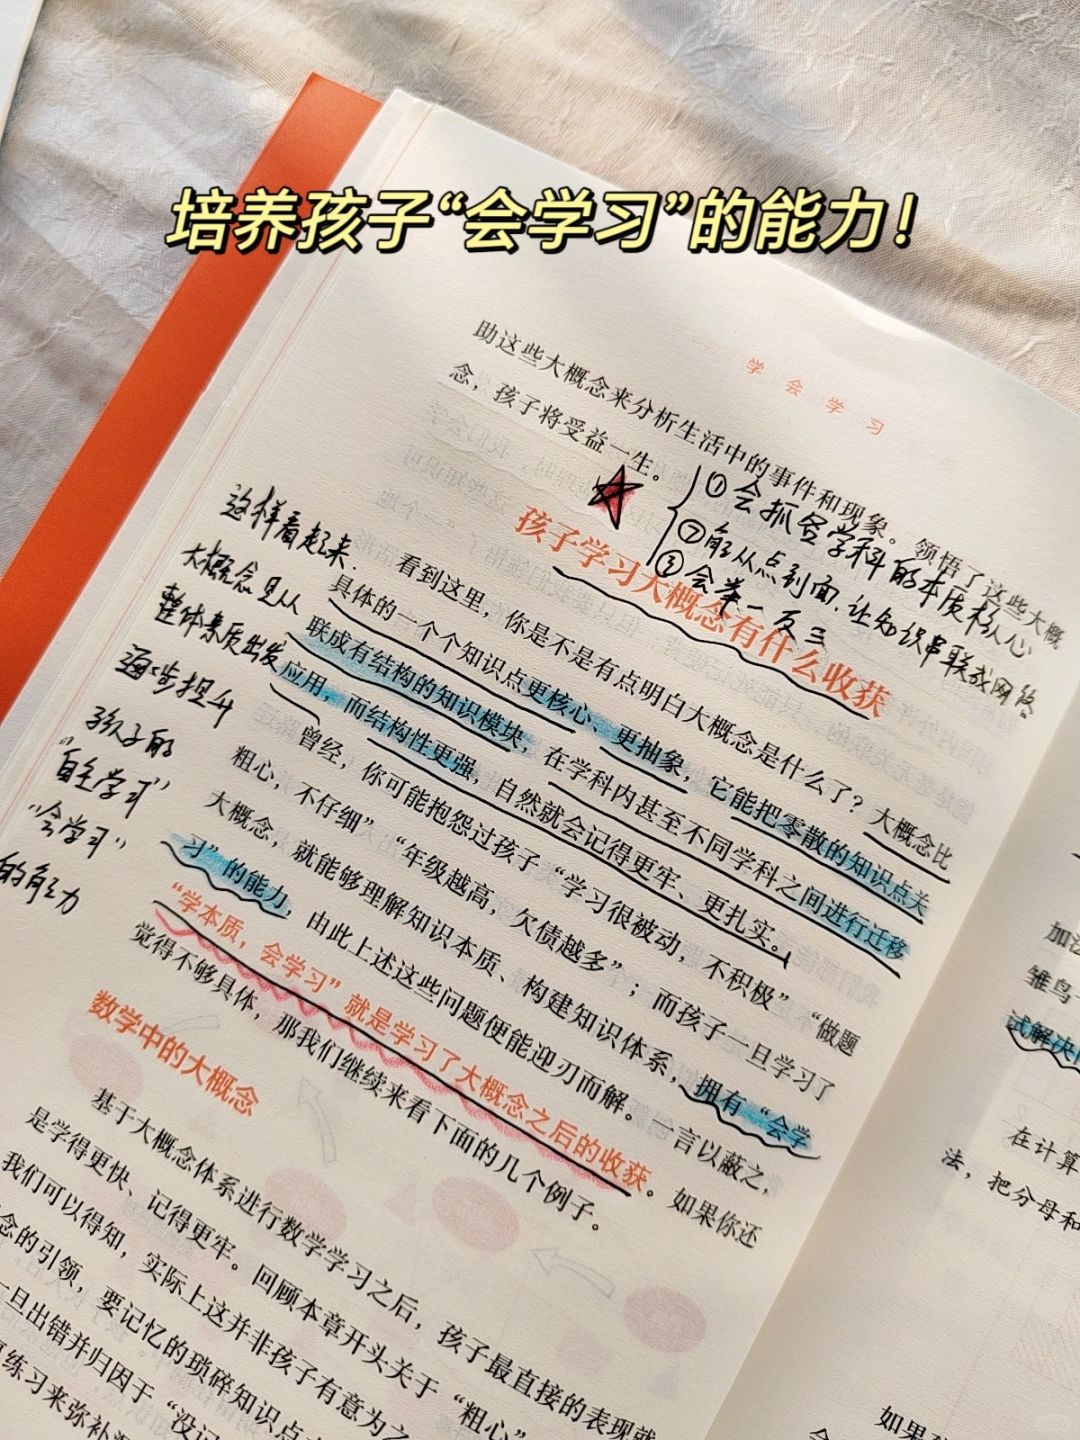 培养孩子“会学习”的能力！
学会学习
助这些大概念来分析生活中的事件和现象。领悟了这些大概
念，孩子将受益一生。
①会抓各学科的本质核心
②能从点到面，让知识串联成网络
③会举一反三
孩子学习大概念有什么收获
看到这里，你是不是有点明白大概念是什么了？大概念比
具体的一个个知识点更核心、更抽象，它能把零散的知识点关
联成有结构的知识模块，在学科内甚至不同学科之间进行迁移
应用，而结构性更强，自然就会记得更牢、更扎实。
曾经，你可能抱怨过孩子“学习很被动，不积极”“做题
粗心，不仔细”“年级越高，欠债越多”；而孩子一旦学习了
大概念，就能够理解知识本质、构建知识体系，拥有“会学
习”的能力，由此上述这些问题便能迎刃而解。一言以蔽之，
“学本质，会学习”就是学习了大概念之后的收获。如果你还
觉得不够具体，那我们继续来看下面的几个例子。
这样看起来
大概念是从
整体素质出发
逐步提升
孩子的
“自主学习”
“会学习”
的能力
数学中的大概念
基于大概念体系进行数学学习之后，孩子最直接的表现就
是学得更快、记得更牢。回顾本章开头关于“粗心”
我们可以得知，实际上这并非孩子有意为之
念的引领，要记忆的琐碎知识点
一旦出错并归因于“没记
练习来弥补
加法
雏鸟
试解决
在计算
法，把分母和
如果